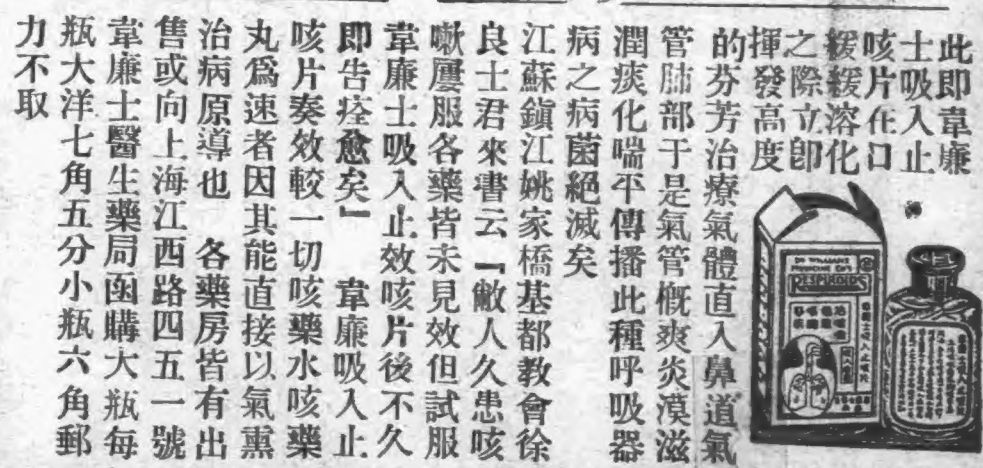 此即韋廉
士吸入止
咳片在口
緩緩溶化
之際立卽
揮發高度
的芬芳治療氣體直入鼻道氣
管肺部于是氣管概爽炎漠滋
潤痰化喘平傳播此種呼吸器
病之病菌絕滅矣
江蘇鎮江姚家橋基都教會徐
良士君來書云『敝人久患咳
嗽屢服各藥皆未見效但試服
韋廉士吸入止效咳片後不久
即告痊愈矣』 韋廉吸入止
咳片奏效較一切咳藥水咳藥
丸爲速者因其能直接以氣熏
治病原導也 各藥房皆有出
售或向上海江西路四五一號
韋廉士醫生藥局函購大瓶每
瓶大洋七角五分小瓶六角郵
力不取
DR WILLIAMS
MEDICINE CO'S
RESPIROIDS